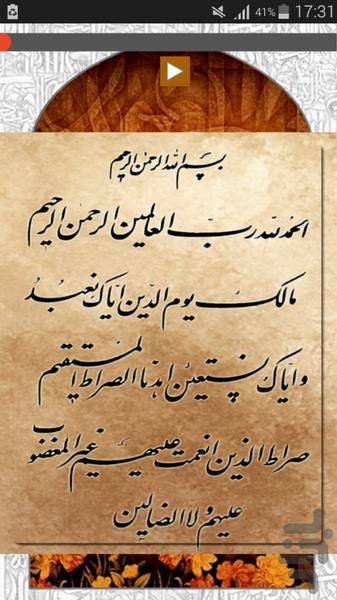 41% 17:31
بسم الله الرحمن الرحیم
الحمد لله رب العالمین الرحمن الرحیم
مالک یوم الدین ایاک نعبد
و ایاک نستعین اهدنا الصراط المستقیم
صراط الذین انعمت علیهم غیر المغضوب
علیهم ولا الضالین